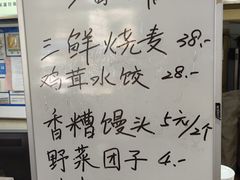 三鲜烧麦 38.-
鸡茸水饺 28.-
香糟馒头 5元/2个
野菜团子 4.-